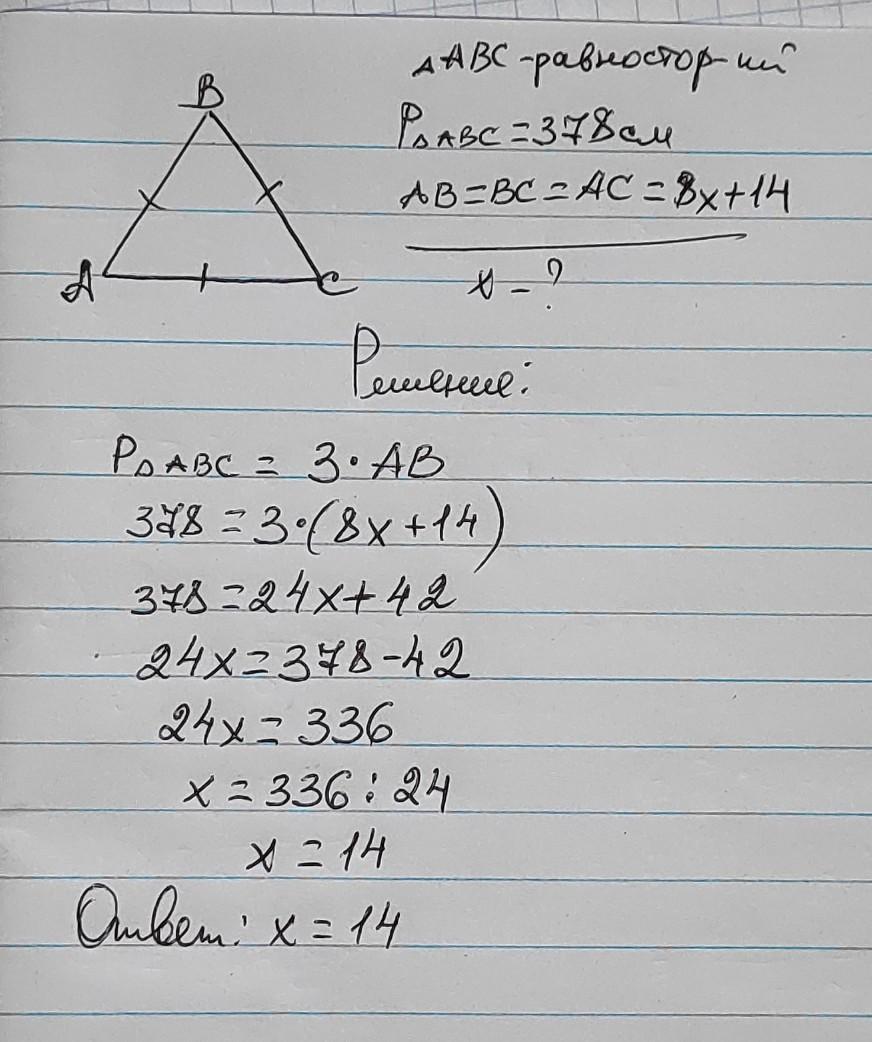 △ABC - равностор-ий
P△ABC = 378 см
AB = BC = AC = 8x + 14
x - ?
B
A
C
Решение:
P△ABC = 3 · AB
378 = 3 · (8x + 14)
378 = 24x + 42
24x = 378 - 42
24x = 336
x = 336 : 24
x = 14
Ответ: x = 14